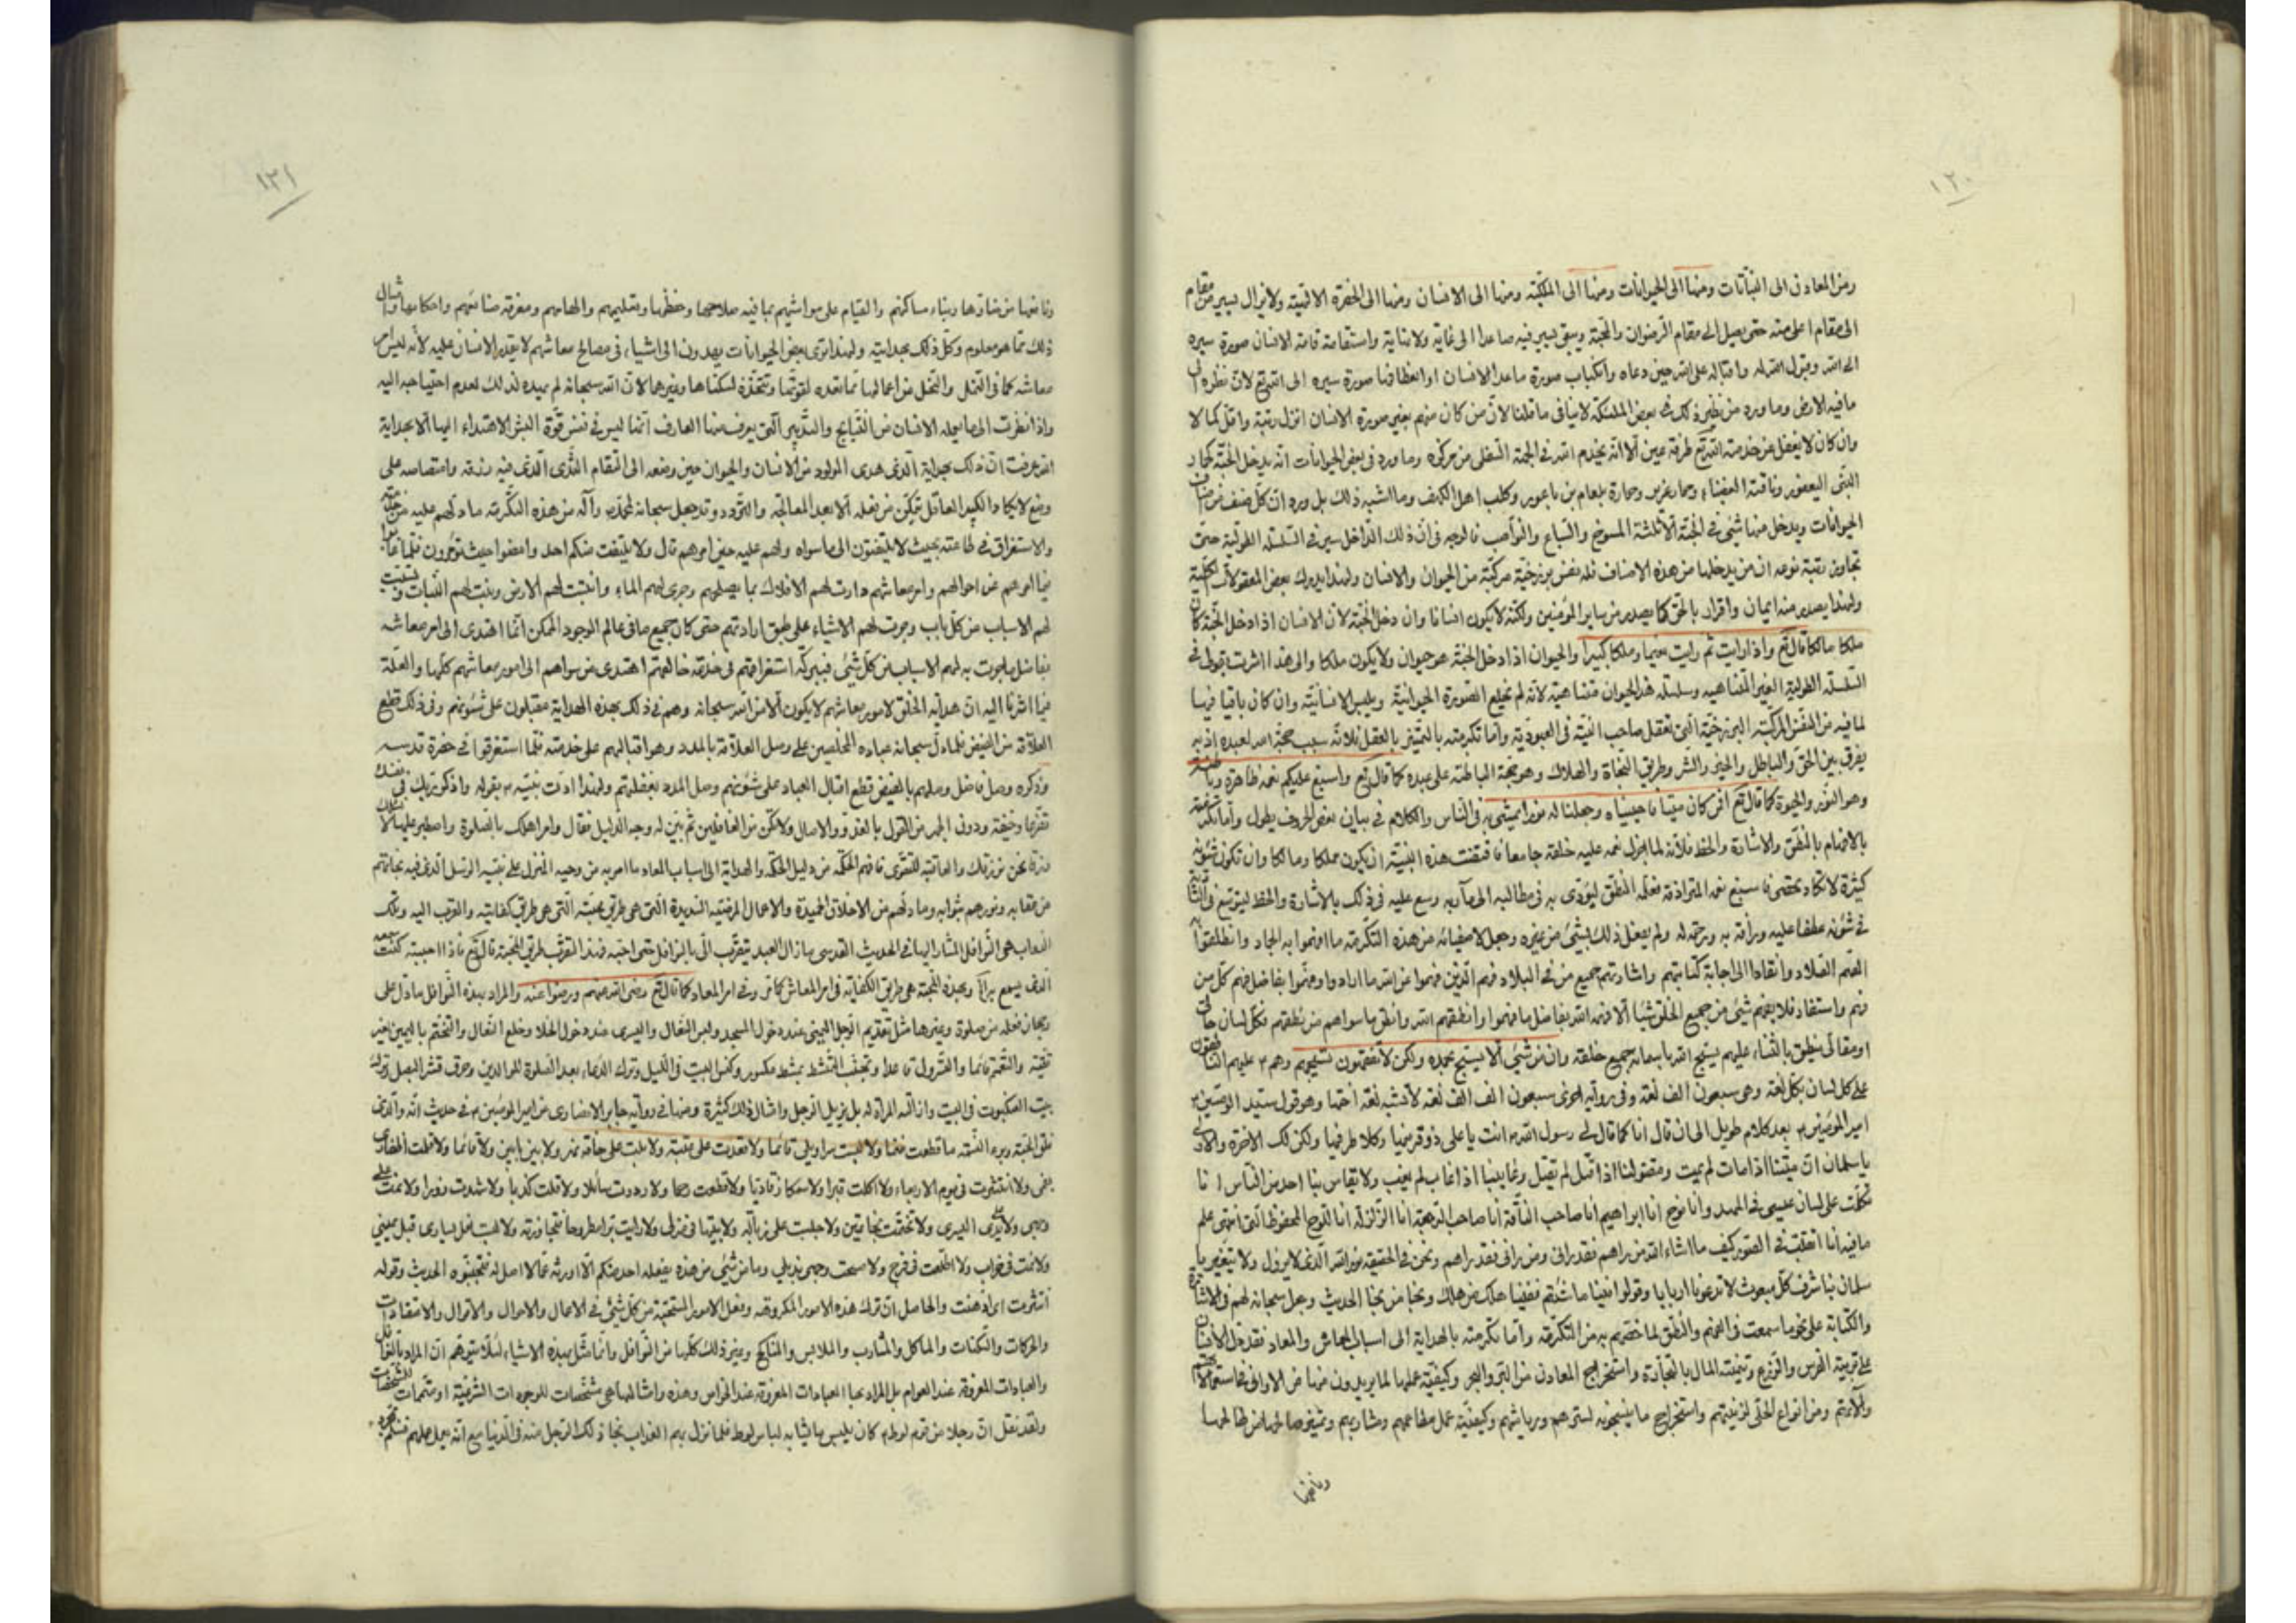 ١٢٠
ومن المعادن الى النباتات ومنها الى الحيوانات ومنها الى الملكيّة ومنها الى الانسان ومنها الى الحضرة الالهية ولايزال يسير من مقام
الى مقام اعلى منه حتى يصل الى مقام الرضوان والمحبة ويبقى يسير فيه صاعدا الى غاية ولا نهاية واستقامة قامة الانسان صورة سيره
الى الله وقبوله واقباله على الله حين دعاه وانكباب صورة ماعدا الانسان او انعطافها صورة سيره الى الله تع لان نظره الى
مافيه الارض وما ورد من نظير ذلك في بعض الملئكة لاينافى ماقلنا لانّ من كان منهم بغير صورة الانسان انزل رتبة واقل كمالا
وان كان لايغفل عن خدمة الله تع طرفة عين الا انّه يخدم الله في الجهة السفلى من مركزه وما ورد في بعض الحيوانات انّه يدخل الجنّة كحمار
النبى اليعفور وناقته العضباء وحمار عزير وحمارة بلعام بن باعور وكلب اهل الكهف وما اشبه ذلك بل ورد انّ كلّ صنف من اصناف
الحيوانات ويدخل منها شئ في الجنة الا ثلثة المسوخ والسباع والنواصب فالوجه فى انّ ذلك الداخل سير في السلسلة الطولية حتى
تجاوز رتبة نوعه ان من يدخلها من هذه الاصناف فله نفس برزخيّة مركّبة من الحيوان والانسان ولهذا يدرك بعض المعقولات الكلية
ولهذا يصدر منه ايمان واقرار بالحق كما يصدر من ساير المؤمنين ولكنّه لايكون انسانا وان دخل الجنّة لان الانسان اذا دخل الجنّة كان
ملكا مالكا قال تع واذا رايت ثم رايت نعيما وملكا كبيرا والحيوان اذا دخل الجنّة هو حيوان ولايكون ملكا والى هذا اشرت بقولى في
السلسلة الطولية الغير المتناهيه وسلسلة هذا الحيوان متناهية لانّه لم يخلع الصورة الحيوانيّة ويلبس الانسانيّة وان كان باقيا فيها
لما فيه من النفس المركّبة البرزخيّة التى تعقل صاحب النيّة فى العبوديّة وامّا تكرمته بالتمييز بالعقل فلانّه سبب محبّة الله لعبده اذ به
يفرق بين الحق والباطل والخير والشر وطريق النجاة والهلاك وهو حجة الباطنة على عبده كما قال تع واسبغ عليكم نعمه ظاهرة وباطنة
وهو النور والحيوة كما قال تع افمن كان ميتا فاحييناه وجعلنا له نورا يمشى به فى النّاس والكلام في بيان بعض الحروف يطول وامّا تكرمته
بالافهام بالمنطق والاشارة والخط فلانّه لما اجزل نعمه عليه خلقه جامعا فاقتضت هذه البنية ان يكون مملكا ومالكا وان تكون شئونه
كثيرة لاتكاد تحصى فاسبغ نعمه المترادفة فعلّمه المنطق ليؤدى به فى مطالبه الى مآربه ووسع عليه فى ذلك بالاشارة والخط ليتوسّع
في شئونه عطفا عليه ورافة به ورحمة له ولم يفعل ذلك بشئ من غيره وجعل لاصفيائه من هذه التكرمة ما افهموا به الجماد وانطقوا به
الصّم الصّلاد وانقادا الى اجابة كتابتهم واشارتهم جميع من في البلاد فهم الذين فهموا عن الله ما اراد وافهموا بفاضل فهم كل من
فهم واستفاد فلا يفهم شئ من جميع الخلق شيئا الا فهمه الله بفاضل ما فهموا وانطقهم الله وانطق ماسواهم من نطقهم فكل لسان حالى
او مقالى ينطق بالثناء عليهم يسبح الله باسمائه جميع خلقه وان من شئ الا يسبح بحمده ولكن لاتفقهون تسبيحهم وهم ع عليهم الناطقون
على كل لسان بكلّ لغة وهى سبعون الف لغة وفى رواية اخرى سبعون الف الف لغة لاتشبه لغة اختها وهو قول سيّد الوصيّين
امير المؤمنين ع بعد كلام طويل الى ان قال انا كما قال لى رسول الله ص انت يا على ذو قرنيها وكلا طرفيها ولك الاخرة والاولى
يا سلمان ان ميّتنا اذا مات لم يمت ومقتولنا اذا قتل لم يقتل وغايبنا اذا غاب لم يغب ولايقاس بنا احد من الناس انا
تكلّمت على لسان عيسى في المهد وانا نوح انا ابراهيم انا صاحب الناقة انا صاحب الرجفة انا الزلزلة انا اللوح المحفوظ الىّ انتهى علم
مافيه انا اتقلّب في الصّور كيف ماشاء الله من راهم فقد رانى ومن رانى فقد راهم ونحن فى الحقيقة نور الله الّذى لايزول ولايتغير يا
سلمان بنا شرف كلّ مبعوث لاتدعونا اربابا وقولوا فينا ماشئتم ففينا هلك من هلك ونجا من نجا الحديث وجعل سبحانه لهم فى الاشارة
والكتابة على نحو ماسمعت في الفهم والنطق لما خصّهم به من التكرمة وامّا تكرمته بالهداية الى اسباب المعاش والمعاد فقد دلّ الانسان
على تربية الغرس والزرع وتنمية المال بالتجارة واستخراج المعادن من البرّ والبحر وكيفيّة عملها لما يريدون منها من الاوانى
وآلاتهم ومن انواع الحلى لزينتهم واستخراج ماينسجونه لسترهم ورياشهم وكيفيّة عمل مطاعمهم ومشاربهم
ونافعها
١٢١
ونافعها من ضارّها وبناء مساكنهم والقيام على مواشيهم بما فيه صلاحها وحفظها وتعليمهم والهامهم ومعرفة منافعهم واحكامها وامثال
ذلك ممّا هو معلوم وكلّ ذلك بهدايته ولهذا ترى بعض الحيوانات يهدون الى اشياء فى مصالح معاشهم لايقدر الانسان عليه لانّه ليس من
معاشه كما فى النمل والنحل من اعمالها ممّا تعده لقوتها وتتخذه لسكناها وغيرهما لانّ الله سبحانه لم يهده لذلك لعدم احتياجه اليه
واذا نظرت الى مايعمله الانسان من الصنايع والتدبير التى يعرف منها العارف انّها ليس فى نفس قوّة البشر الاهتداء اليها الا بهداية
الله عرفت انّ ذلك بهداية الّذى هدى المولود من الانسان والحيوان حين وضعه الى التقام الثدى الّذى فيه رزقه وامتصاصه على
وضع لايكاد الكبير العاقل يتمكّن من فعله الا بعد المعالجة والتردد وقد جعل سبحانه لمحمد ص وآله من هذه التكرمة ما دلّهم عليه من خدمته
والاستغراق في طاعته بحيث لايلتفتون الى ماسواه ولهم عليه حين امرهم قال ولايلتفت منكم احد وامضوا حيث تؤمرون
فيما امرهم عن احوالهم وامر معاشهم دارت لهم الافلاك بما يصلحهم وجرى لهم الماء وانبتت لهم الارض ونبت لهم النبات وتسبّبت
لهم الاسباب من كلّ باب وجرت لهم الاشياء على طبق ارادتهم حتى كان جميع مافى عالم الوجود الممكن انّما اهتدى الى امر معاشه
بفاضل ماجرت به لهم الاسباب من كلّ شئ فببركة استغراقهم فى خدمة خالقهم اهتدى من سواهم الى امور معاشهم كلّها والعلّة
فيما اشرنا اليه انّ هداية الخلق لامور معاشهم لايكون الا من الله سبحانه وهم فى ذلك بهذه الهداية مقبلون على شئونهم وفى ذلك قطع
العلاقة من الفيض فلما دلّ سبحانه عباده المخلصين على وصل العلاقة بالمدد وهو اقبالهم على خدمته فلما استغرقوا في حضرة قدسه
وذكره وصل فاضل وصلهم بالفيض قطع اقبال العباد على شئونهم وصل المدد بغفلتهم ولهذا ادّب نبيّه ص بقوله واذكر ربّك فى نفسك
تضرّعا وخيفة ودون الجهر من القول بالغدو والاصال ولاتكن من الغافلين ثم بيّن له وجه الدليل فقال وامر اهلك بالصلوة واصطبر عليها لانسئلك
رزقا نحن نرزقك والعاقبة للتقوى فافهم الحكمة من دليل الحكمة والهداية الى اسباب المعاد ما امر به من وحيه المنزل على نبيّه المرسل الّذى فيه نجاتهم
من عقابه وفوزهم بثوابه وما دلّهم من الاخلاق الحميدة والاعمال المرضيّة السديدة التى هى طريق محبّته الّتى هى طريق كفايته والقرب اليه وتلك
الاداب هى النّوافل المشار اليها في الحديث القدسى مازال العبد يتقرّب الىّ بالنوافل حتى احبّه فهذا التقرّب طريق المحبة قال تع فاذا احببته كنت سمعه
الّذى يسمع به الخ وبهذه المحبّة هى طريق الكفاية فى امر المعاش كما مر وفى امر المعاد كما قال تع رضى الله عنهم ورضوا عنه والمراد بهذه النّوافل ما دلّ على
رجحان فعله من صلوة وغيرها مثل تقديم الرجل اليمنى عند دخول المسجد ولبس النعال واليسرى عند دخول الخلا وخلع النعال والتختّم باليمين لغير
تقيّة والتعمّم قائما والتسرول قاعدا وتجنّب التمشّط بمشط مكسور وكنس البيت فى الليل وترك الدّعاء بعد الصلوة للوالدين وحرق قشر البصل وترك
بيت العنكبوت فى البيت وازالته المرأة له بل يزيل الرجل وامثال ذلك كثيرة ومنها في رواية جابر الانصارى عن امير المؤمنين ع فى حديث انّه والّذى
فلق الحبّة وبرء النسمة ماقطعت غنما ولا لبست سراويلى قائما ولا قعدت على عتبة ولا بلت على حافة نهر ولا بين بابين ولا قائما ولا قلمت اظفارى
بفمى ولا انتشرت فى يوم الاربعاء ولا اكلت قبرا ولا سمكا ولا قطعت رحما ولا رددت سائلا ولا قلت كذبا ولا شهدت زورا ولا نمت على
وجهى ولا يدى اليسرى ولا تختّمت بخاتمين ولا جلست على زبالة ولا بيّتها فى منزلى ولا رايت برا مطروحا فتجاوزته ولا لبست نعل يسارى قبل يمينى
ولا نمت فى خراب ولا اطّلعت فى فرج ولا مسحت وجهى بذيلى وما من شئ من هذه يفعله احد منكم الا اورثه غمّا لا اصل له فتجنّبوه الحديث وقوله
انتشرت اى ادّهنت والحاصل انّ ترك هذه الامور المكروهة وفعل الامور المستحبّة من كلّ شئ في الاعمال والاحوال والاقوال والاعتقادات
والحركات والسكنات والماكل والمشارب والملابس والمناكح وغير ذلك كلّها من النّوافل وانّما مثّل بهذه الاشياء لئلا يتوهّم انّ المراد بالنّوافل
والعبادات المعروفة عند العوام بل المراد بها العبادات المعروفة عند الخواص وهذه وامثالها هى مشخّصات للوجودات الشرعيّة او متمّمات للمشخّصات
ولقد نقل انّ رجلا من قوم لوط ع كان يلبس ثيابه لباس لوط فلما نزل بهم العذاب نجا ذلك الرجل منه فى الدنيا مع انّه يعمل عملهم